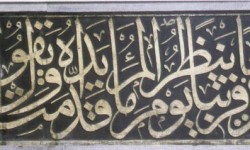 قريبا يوم ينظر المرء ما قدمت يداه ويقو